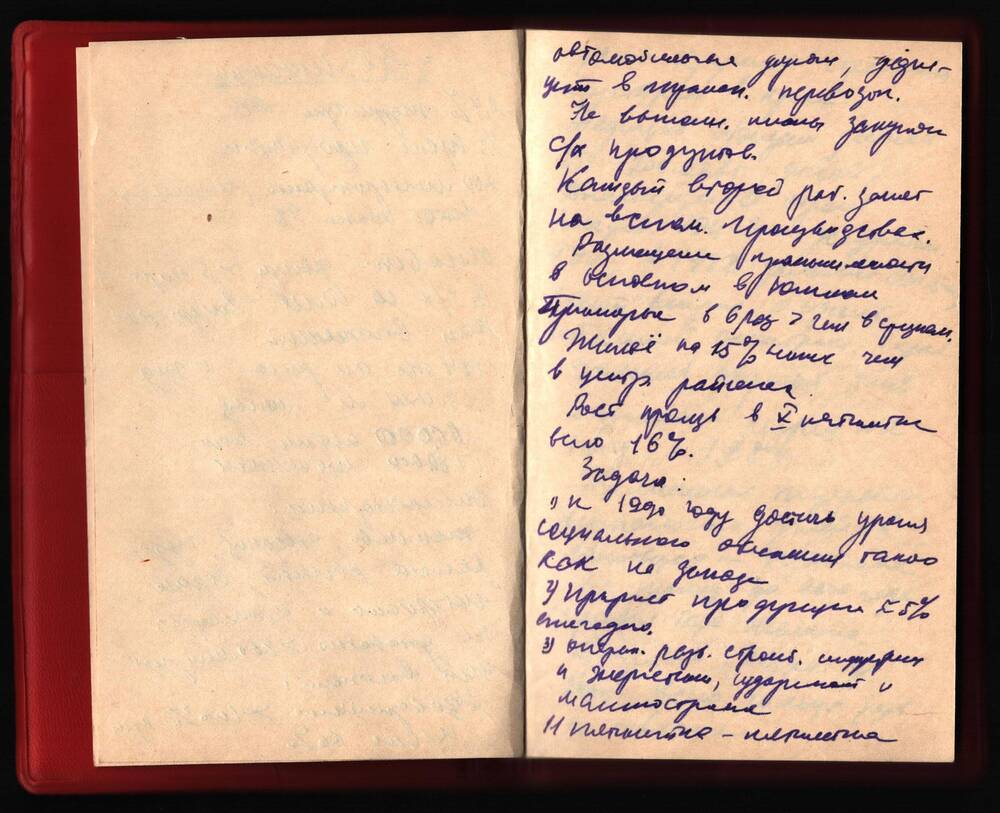 автомобильные дороги, дефи-
цит в трансп. перевозок.
Не выполн. планы закупок
с/х продуктов.
Каждый второй раб. занят
на вспом. производствах.
Размещение промышленности
в основном в Южном
Приморье в 6 раз > чем в средн.
Жильё на 15% ниже чем
в центр. районах
Рост произв в X пятилетке
было 16%.
Задача:
1) к 1990 году достичь уровня
социального обеспечения такого
как на западе
2) Прирост продукции 5%
ежегодно.
3) опереж. разв. строит. индустрии
и энергетики, судоремонт и
машиностроение
11 пятилетка – пятилетка